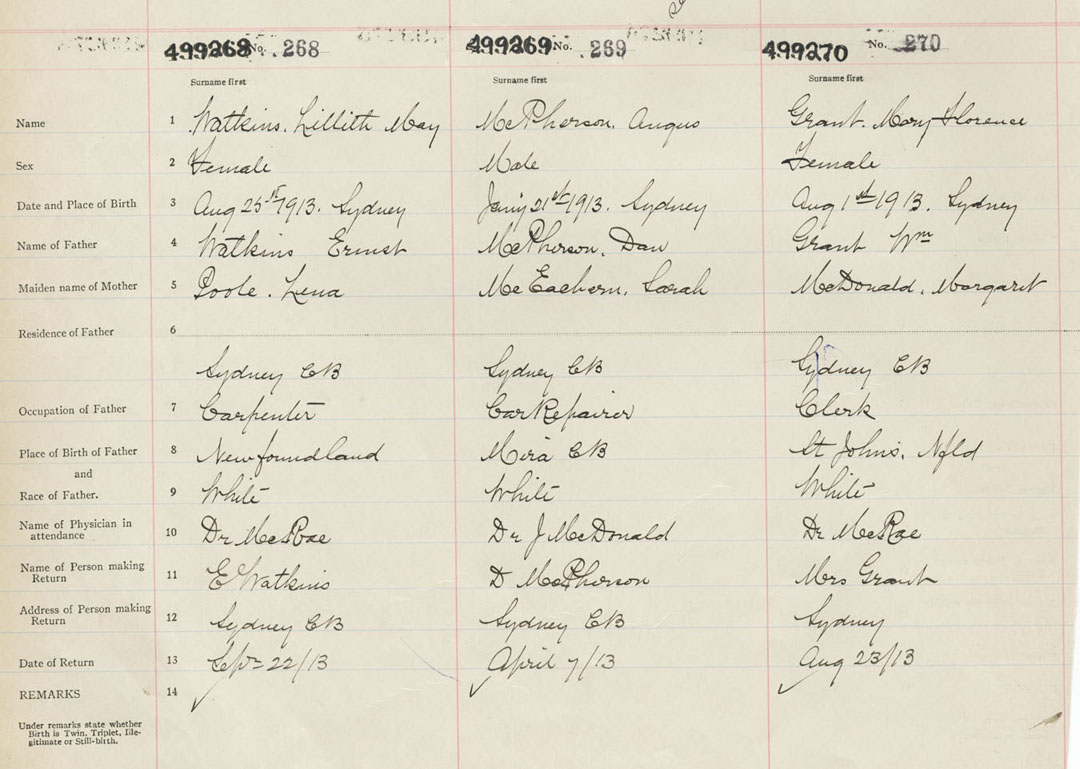 499268 No. 268 499269 No. 269 499270 No. 270
Surname first Surname first Surname first
Name 1 Watkins. Lillith May McPherson. Angus Grant. Mary Florence
Sex 2 Female Male Female
Date and Place of Birth 3 Aug 25st 1913. Sydney Jany 21st 1913. Sydney Aug 1st 1913. Sydney
Name of Father 4 Watkins Ernest McPherson. Dan Grant Wm
Maiden name of Mother 5 Poole. Lena McEachern. Sarah McDonald. Margaret
Residence of Father 6
Sydney CB Sydney CB Sydney CB
Occupation of Father 7 Carpenter Car Repairer Clerk
Place of Birth of Father 8 Newfoundland Mira CB St Johns. Nfld
and
Race of Father. 9 White White White
Name of Physician in
attendance 10 Dr McRae Dr J McDonald Dr McRae
Name of Person making
Return 11 E Watkins D McPherson Mrs Grant
Address of Person making
Return 12 Sydney CB Sydney CB Sydney
Date of Return 13 Sept 22/13 April 7/13 Aug 23/13
REMARKS 14
Under remarks state whether
Birth is Twin, Triplet, Ille-
gitimate or Still-birth.